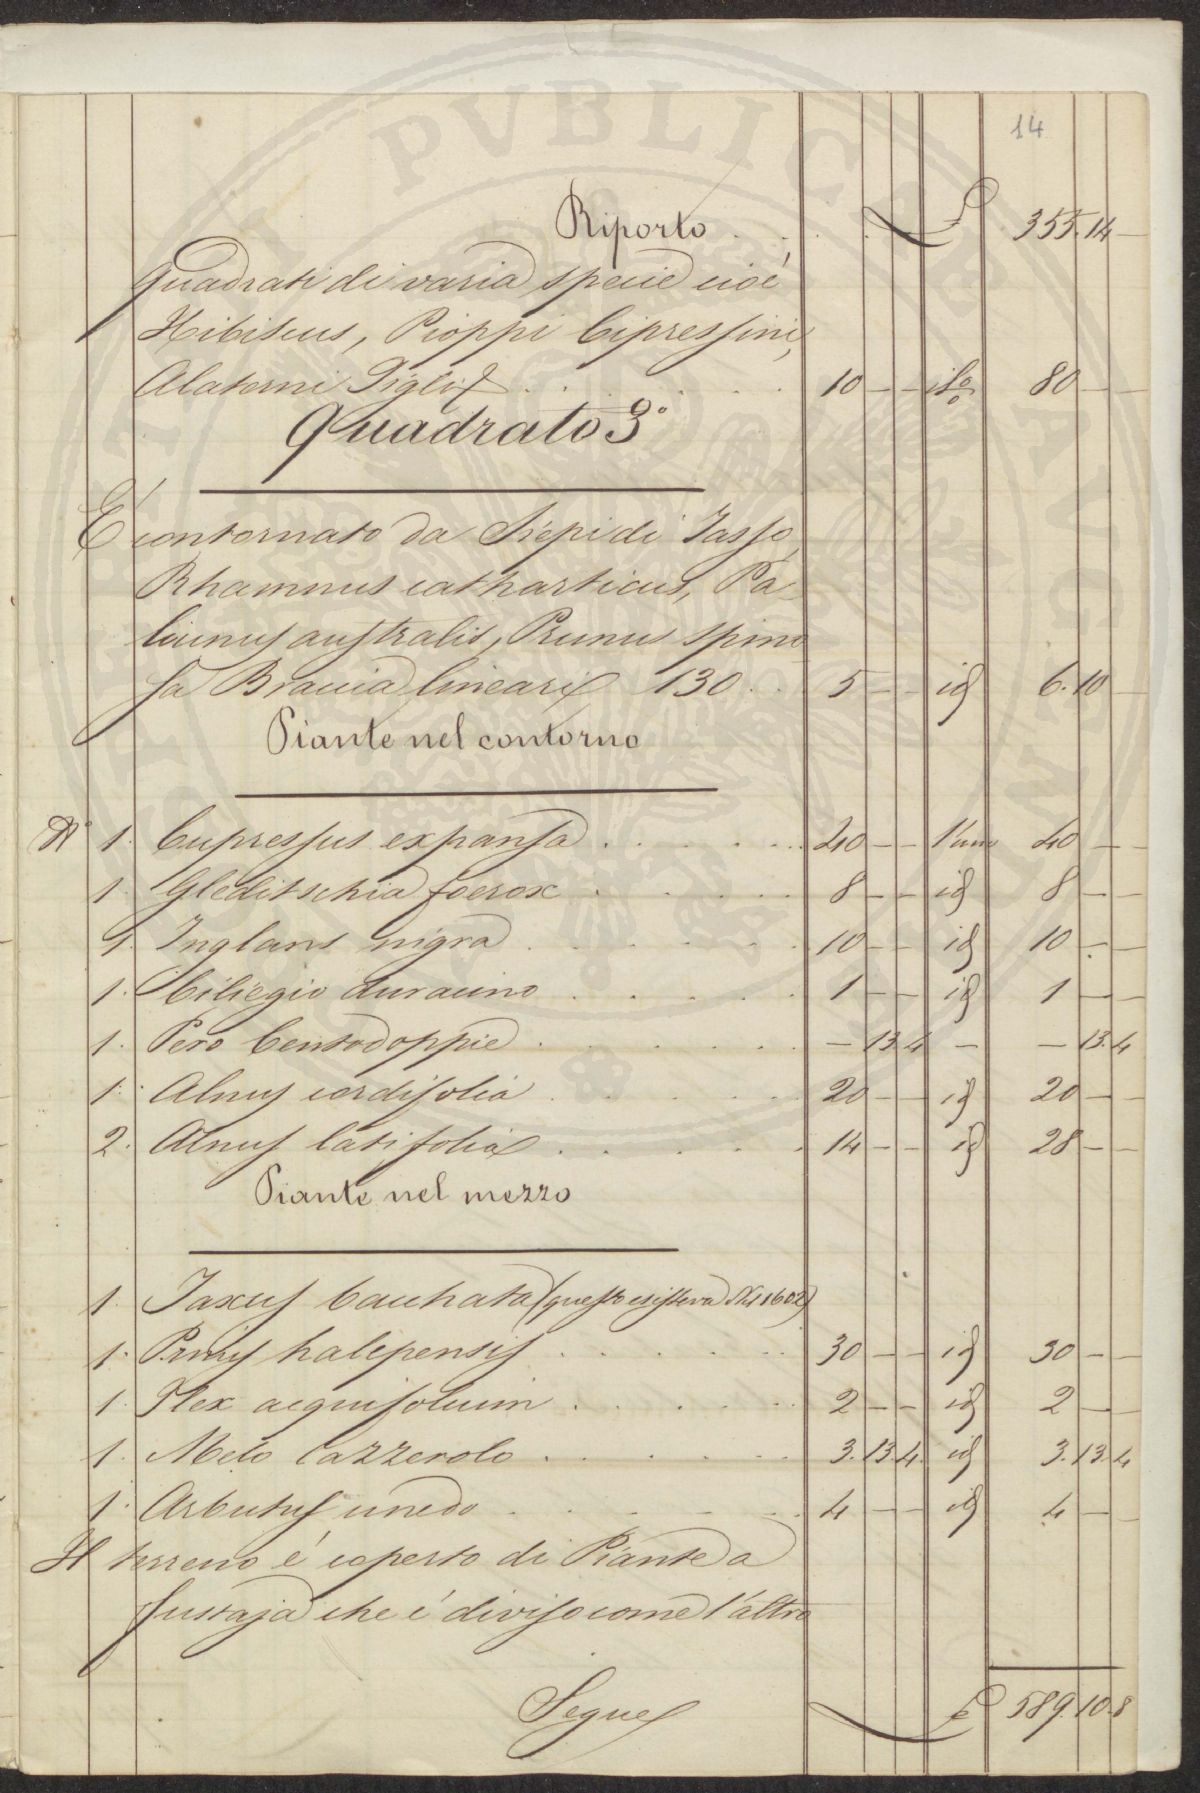 14
Riporto . . . . £ 355. 14 —
quadrati di varia specie cioè
Hibiscus, Pioppi Cipressini,
Alaterni Tiglj . . . . . 10 — — 80 — —
Quadrato 3°
È contornato da Siepi di Tasso,
Rhamnus catharticus, Pa
liurus australis, Prunus spino
sa Braccia lineari 130 . . 5 — — id 6. 10 —
Piante nel contorno
N° 1. Cupressus expansa . . . . . 40 — — l'uno 40 — —
1. Gleditschia foerox . . . . . 8 — — id 8 — —
1. Inglans nigra . . . . . 10 — — id 10 — —
1. Ciliegio duracino . . . . . 1 — — id 1 — —
1. Pero Centodoppie . . . . . — 13. 4 — — 13. 4
1. Alnus cordifolia . . . . . 20 — — id 20 — —
2. Alnus latifolia . . . . . 14 — — id 28 — —
Piante nel mezzo
1. Taxus baccata (questo esisteva 1602)
1. Pinus halepensis . . . . . 30 — — id 30 — —
1. Ilex aequifolium . . . . . 2 — — id 2 — —
1. Melo Lazzerolo . . . . . 3. 13. 4. id 3. 13. 4
1. Arbutus unedo . . . . . 4 — — id 4 — —
Il terreno è coperto di Piante a
fustaja che è diviso come l'altro
Segue £ 589. 10. 8